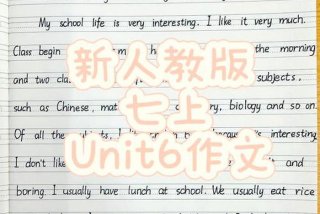 My school life is very interesting. I like it very much.
Class begin the morning
新人教版
and two clas subjects,
such as Chinese, mat ry, biology and so on.
七上
Of all the interesting
Unit6作文
I don't like and
boring. I usually have lunch at school. We usually eat rice